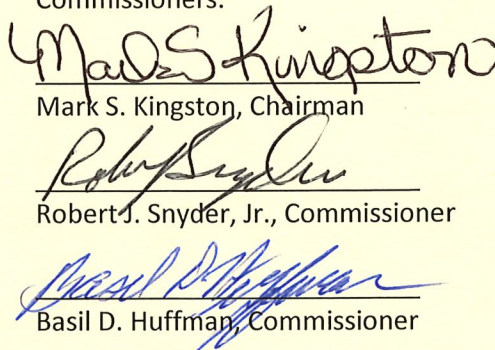 Commissioners:
Mark S Kingston
Mark S. Kingston, Chairman
Robert Snyder
Robert J. Snyder, Jr., Commissioner
Basil D. Huffman
Basil D. Huffman, Commissioner